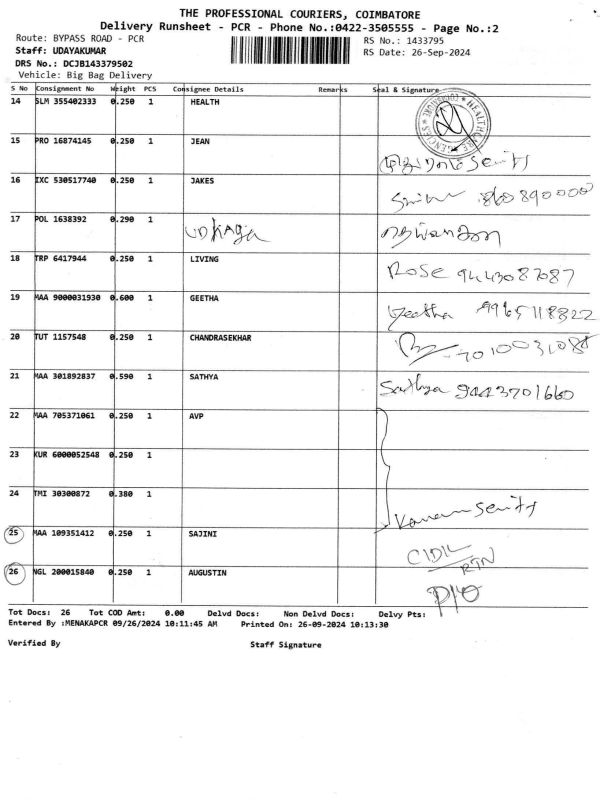 THE PROFESSIONAL COURIERS, COIMBATORE
Delivery Runsheet - PCR - Phone No.:0422-3505555 - Page No.:2
Route: BYPASS ROAD - PCR RS No.: 1433795
Staff: UDAYAKUMAR RS Date: 26-Sep-2024
DRS No.: DCJB143379502
Vehicle: Big Bag Delivery
S No Consignment No Weight PCS Consignee Details Remarks Seal & Signature
14 SLM 355402333 0.250 1 HEALTH
15 PRO 16874145 0.250 1 JEAN
16 IXC 530517740 0.250 1 JAKES
17 POL 1638392 0.290 1
18 TRP 6417944 0.250 1 LIVING Rose 9443087087
19 MAA 9000031930 0.600 1 GEETHA Geetha 9965118322
20 TUT 1157548 0.250 1 CHANDRASEKHAR
21 MAA 301892837 0.590 1 SATHYA Sathya 9443701660
22 MAA 705371061 0.250 1 AVP
23 KUR 6000052548 0.250 1
24 TMI 30300872 0.380 1
25 MAA 109351412 0.250 1 SAJINI
RTN
26 NGL 200015840 0.250 1 AUGUSTIN
Tot Docs: 26 Tot COD Amt: 0.00 Delvd Docs: Non Delvd Docs: Delvy Pts:
Entered By :MENAKAPCR 09/26/2024 10:11:45 AM Printed On: 26-09-2024 10:13:30
Verified By Staff Signature